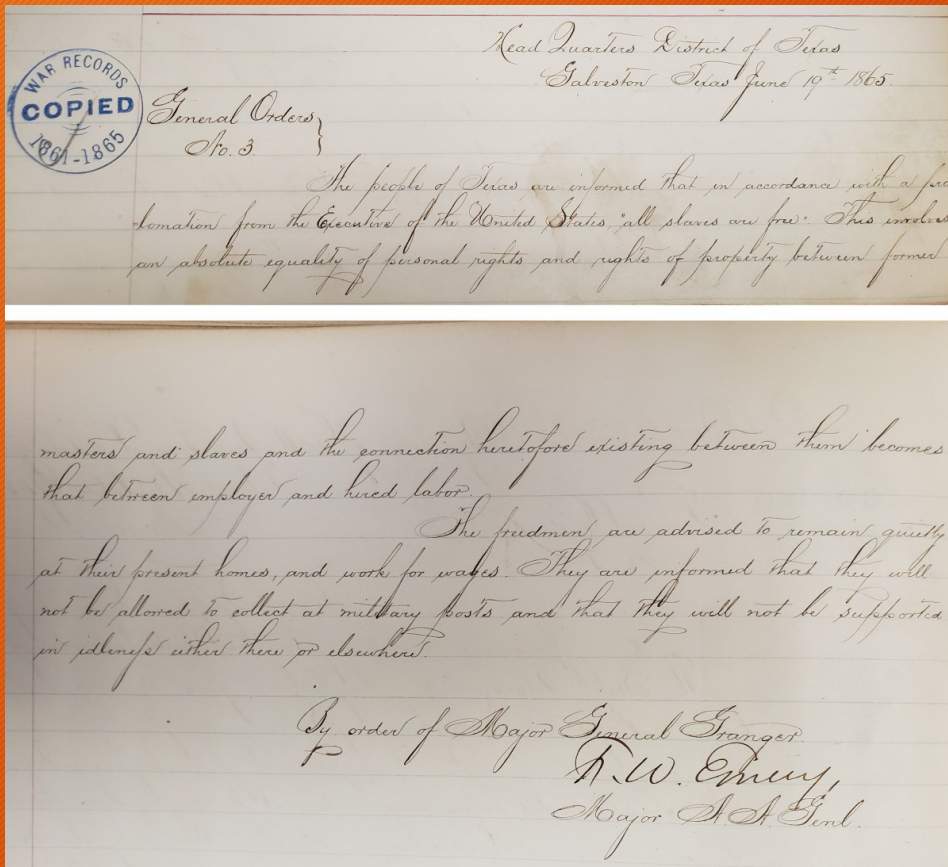 WAR RECORDS
COPIED
1861-1865
Head Quarters District of Texas
Galveston Texas June 19th 1865.
General Orders
No. 3.
The people of Texas are informed that in accordance with a pro
-clamation from the Executive of the United States, "all slaves are free." This involves
an absolute equality of personal rights and rights of property between former
masters and slaves and the connection heretofore existing between them becomes
that between employer and hired labor.
The freedmen are advised to remain quietly
at their present homes, and work for wages. They are informed that they will
not be allowed to collect at military posts and that they will not be supported
in idleness either there or elsewhere.
By order of Major General Granger
F. W. Emery,
Major A A Genl.